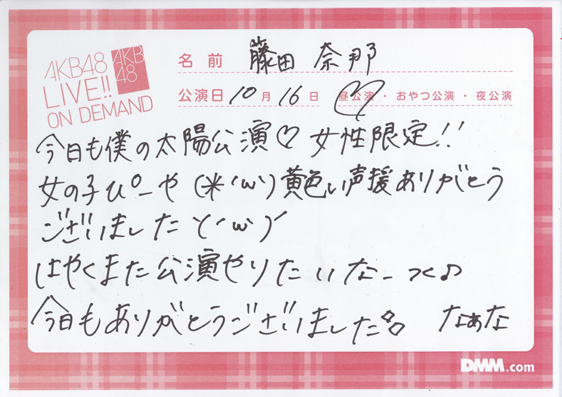 AKB48
LIVE!!
ON DEMAND
AKB
48
名前 藤田 奈那
公演日 10月16日 昼公演・おやつ公演・夜公演
今日も僕の太陽公演♡女性限定!!
女の子ぴーや(*'ω')黄色い声援ありがとう
ございました\('ω')/
はやくまた公演やりたいなーって♪
今日もありがとうございました
なぁな
DMM.com